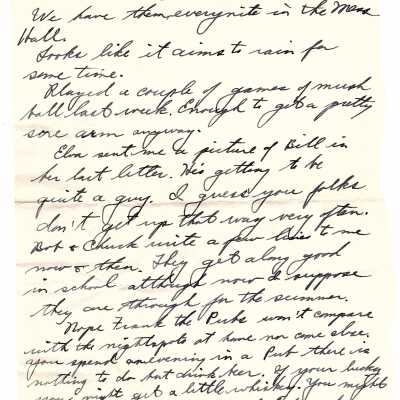 We have them everynite in the Mess
Hall.
Looks like it aims to rain for
some time.
Played a couple of games of mush
ball last week. Enough to get a pretty
sore arm anyway.
Elva sent me a picture of Bill in
her last letter. His getting to be
quite a guy. I guess you folks
don't get up that way very often.
Bob & Chuck write a few lines to me
now & then. They get along good
in school although now I suppose
they are through for the summer.
Nope Frank the Pubs won't compare
with the nightspots at home nor come close.
you spend an evening in a Pub there is
nothing to do but drink beer. If your lucky
you might get a little whiskey. You might